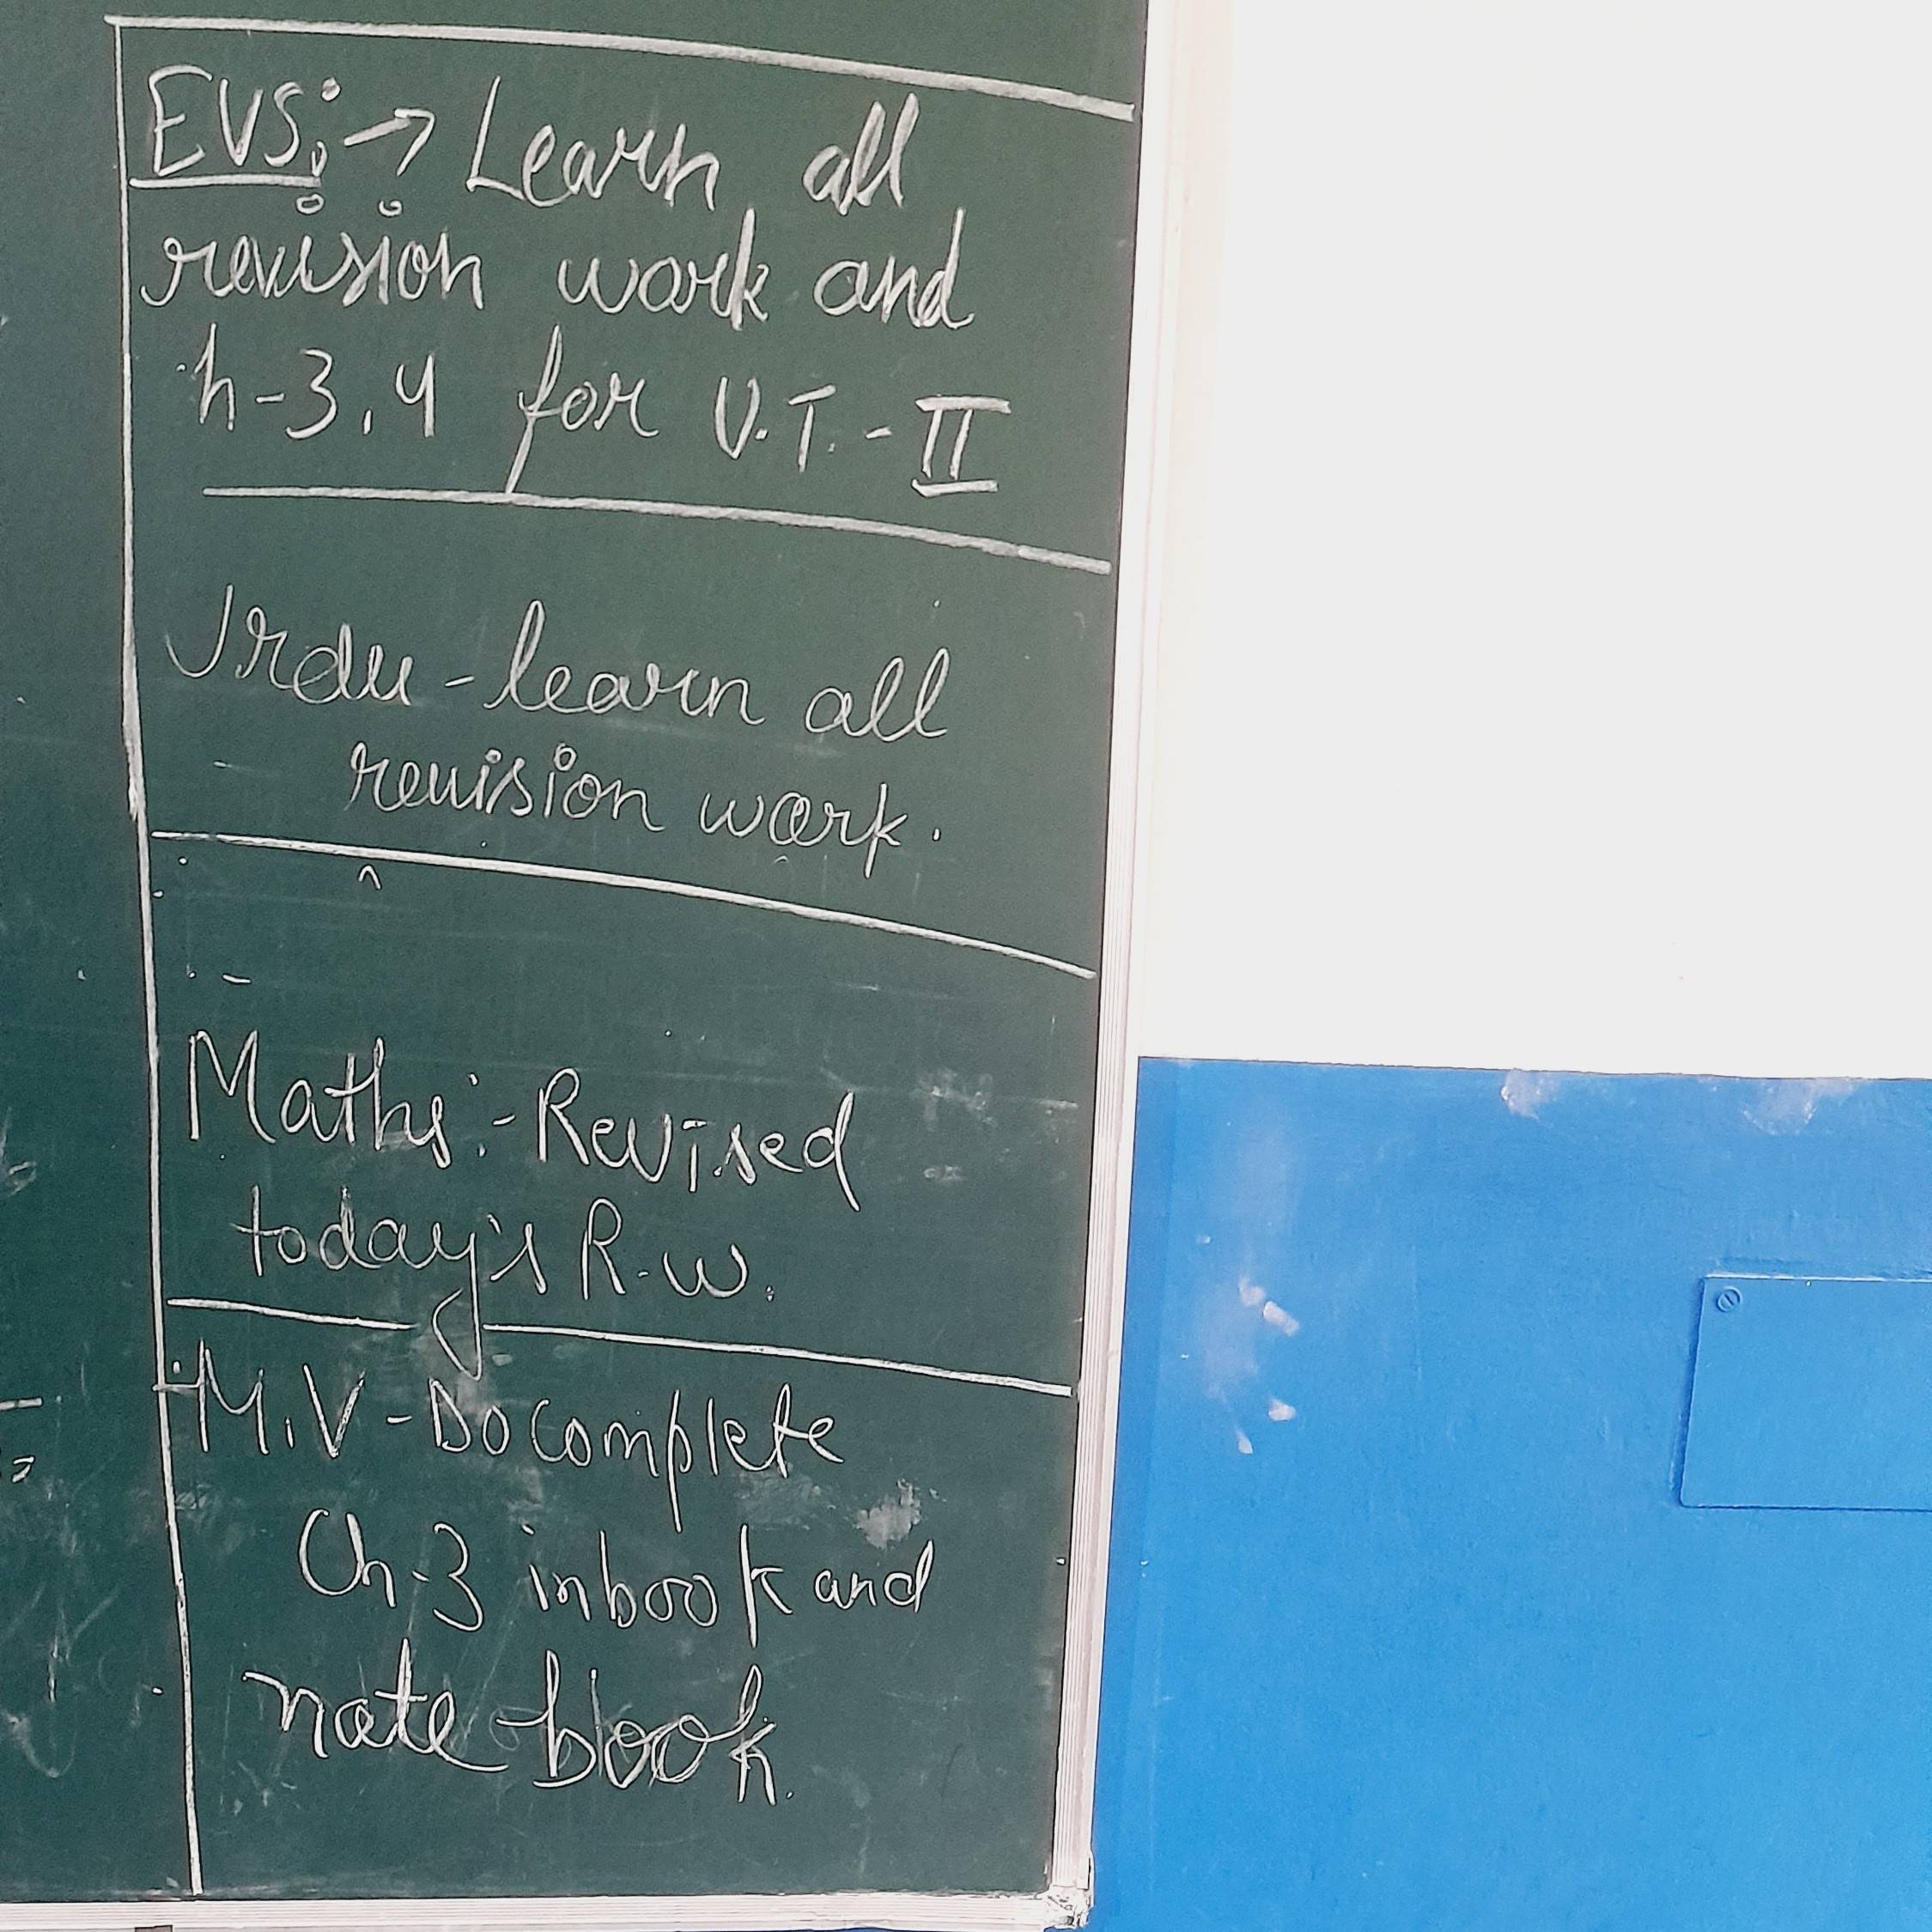 EVS:→ Learn all
revision work and
h-3,4 for U.T.-II
Urdu - learn all
revision work.
Maths:- Revised
today's R.w.
M.V - Do complete
Ch-3 in book and
note book.